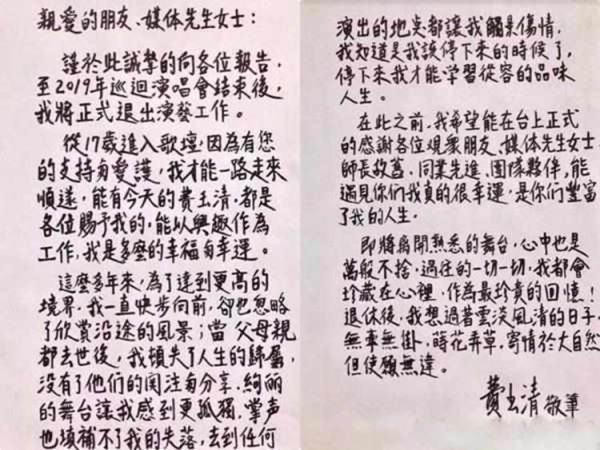 親愛的朋友、媒体先生女士：
謹於此誠摯的向各位報告，
至2019年巡迴演唱會結束後，
我將正式退出演藝工作。
從17歲進入歌壇，因為有您
的支持与愛護，我才能一路走來
順遂，能有今天的費玉清，都是
各位賜予我的，能以興趣作為
工作，我是多麼的幸福与幸運。
這麼多年來，為了達到更高的
境界，我一直快步向前，卻也忽略
了欣賞沿途的風景；當 父母親
都去世後，我頓失了人生的歸屬，
沒有了他們的関注与分享，絢麗
的舞台讓我感到更孤獨，掌声
也填補不了我的失落，去到任何
演出的地点都讓我觸景傷情，
我知道是我該停下來的時候了，
停下來我才能學習從容的品味
人生。
在此之前，我希望能在台上正式
的感謝各位觀衆朋友、媒体先生女士、
師長故舊、同業先進、團隊夥伴，能
遇見你们我真的很幸運，是你们豐富
了我的人生。
即將离開熟悉的舞台，心中也是
萬般不捨，過往的一切一切，我都會
珍藏在心裡，作為最珍貴的回憶！
退休後，我想過著雲淡風清的日子，
無牽無掛，蒔花弄草，寄情於大自然
但使願無違。
費玉清 敬筆